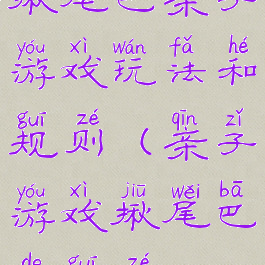 揪尾巴亲子
yóu xì wán fǎ hé
游戏玩法和
guī zé qīn zǐ
规则（亲子
yóu xì jiū wěi bā
游戏揪尾巴
de guī zé